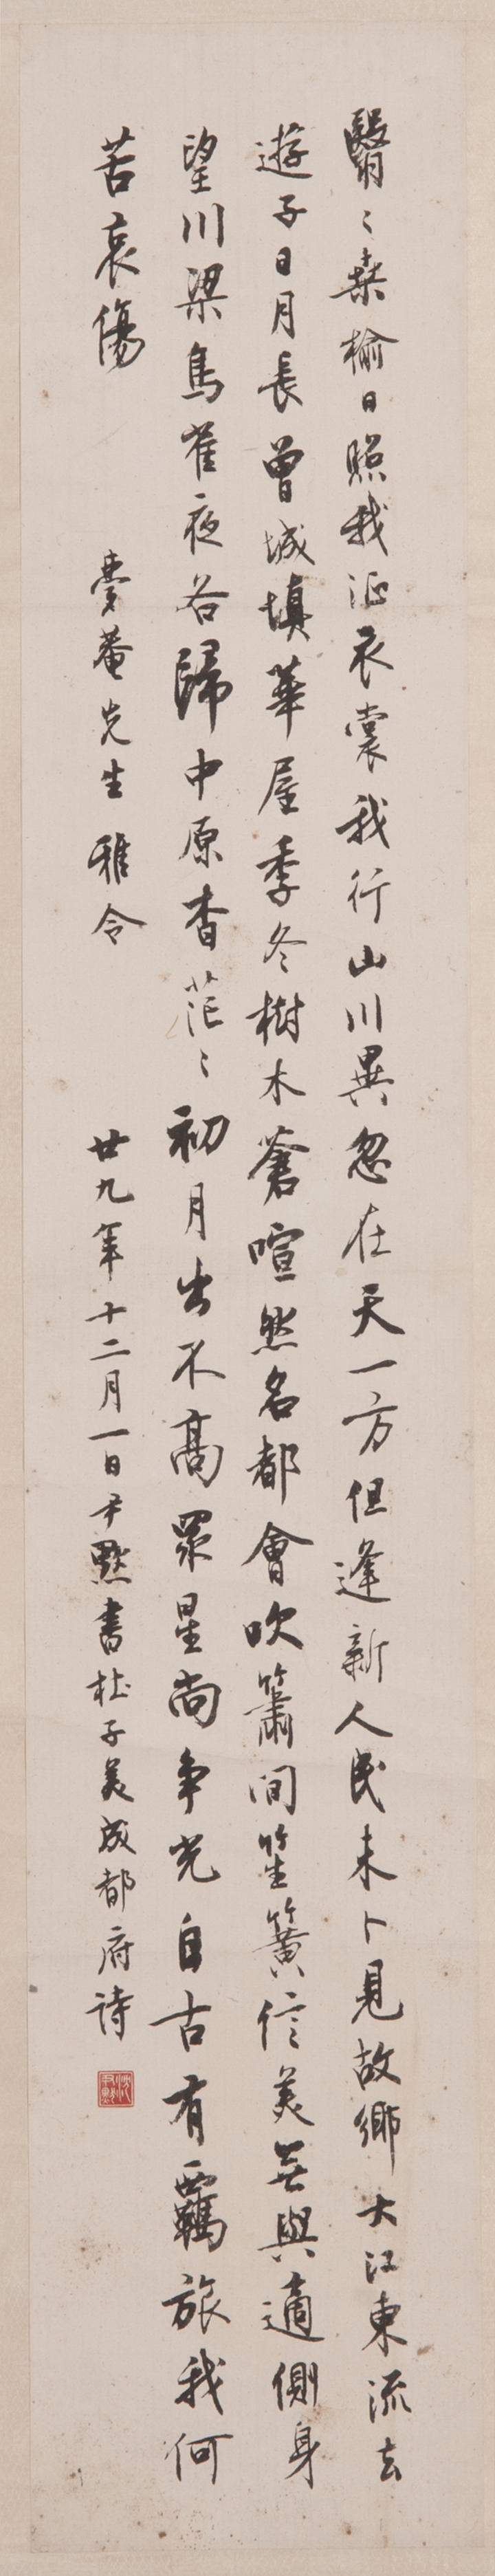 翳〻桑榆日照我征衣裳我行山川異忽在天一方但逢新人民未卜見故鄉大江東流去
遊子日月長曾城填華屋季冬樹木蒼喧然名都會吹簫間笙簧信美無與適側身
望川梁鳥雀夜各歸中原杳茫〻初月出不高眾星尚爭光自古有羈旅我何
苦哀傷
菴先生雅令
廿九年十二月一日尹默書杜子美成都府詩
沈尹默